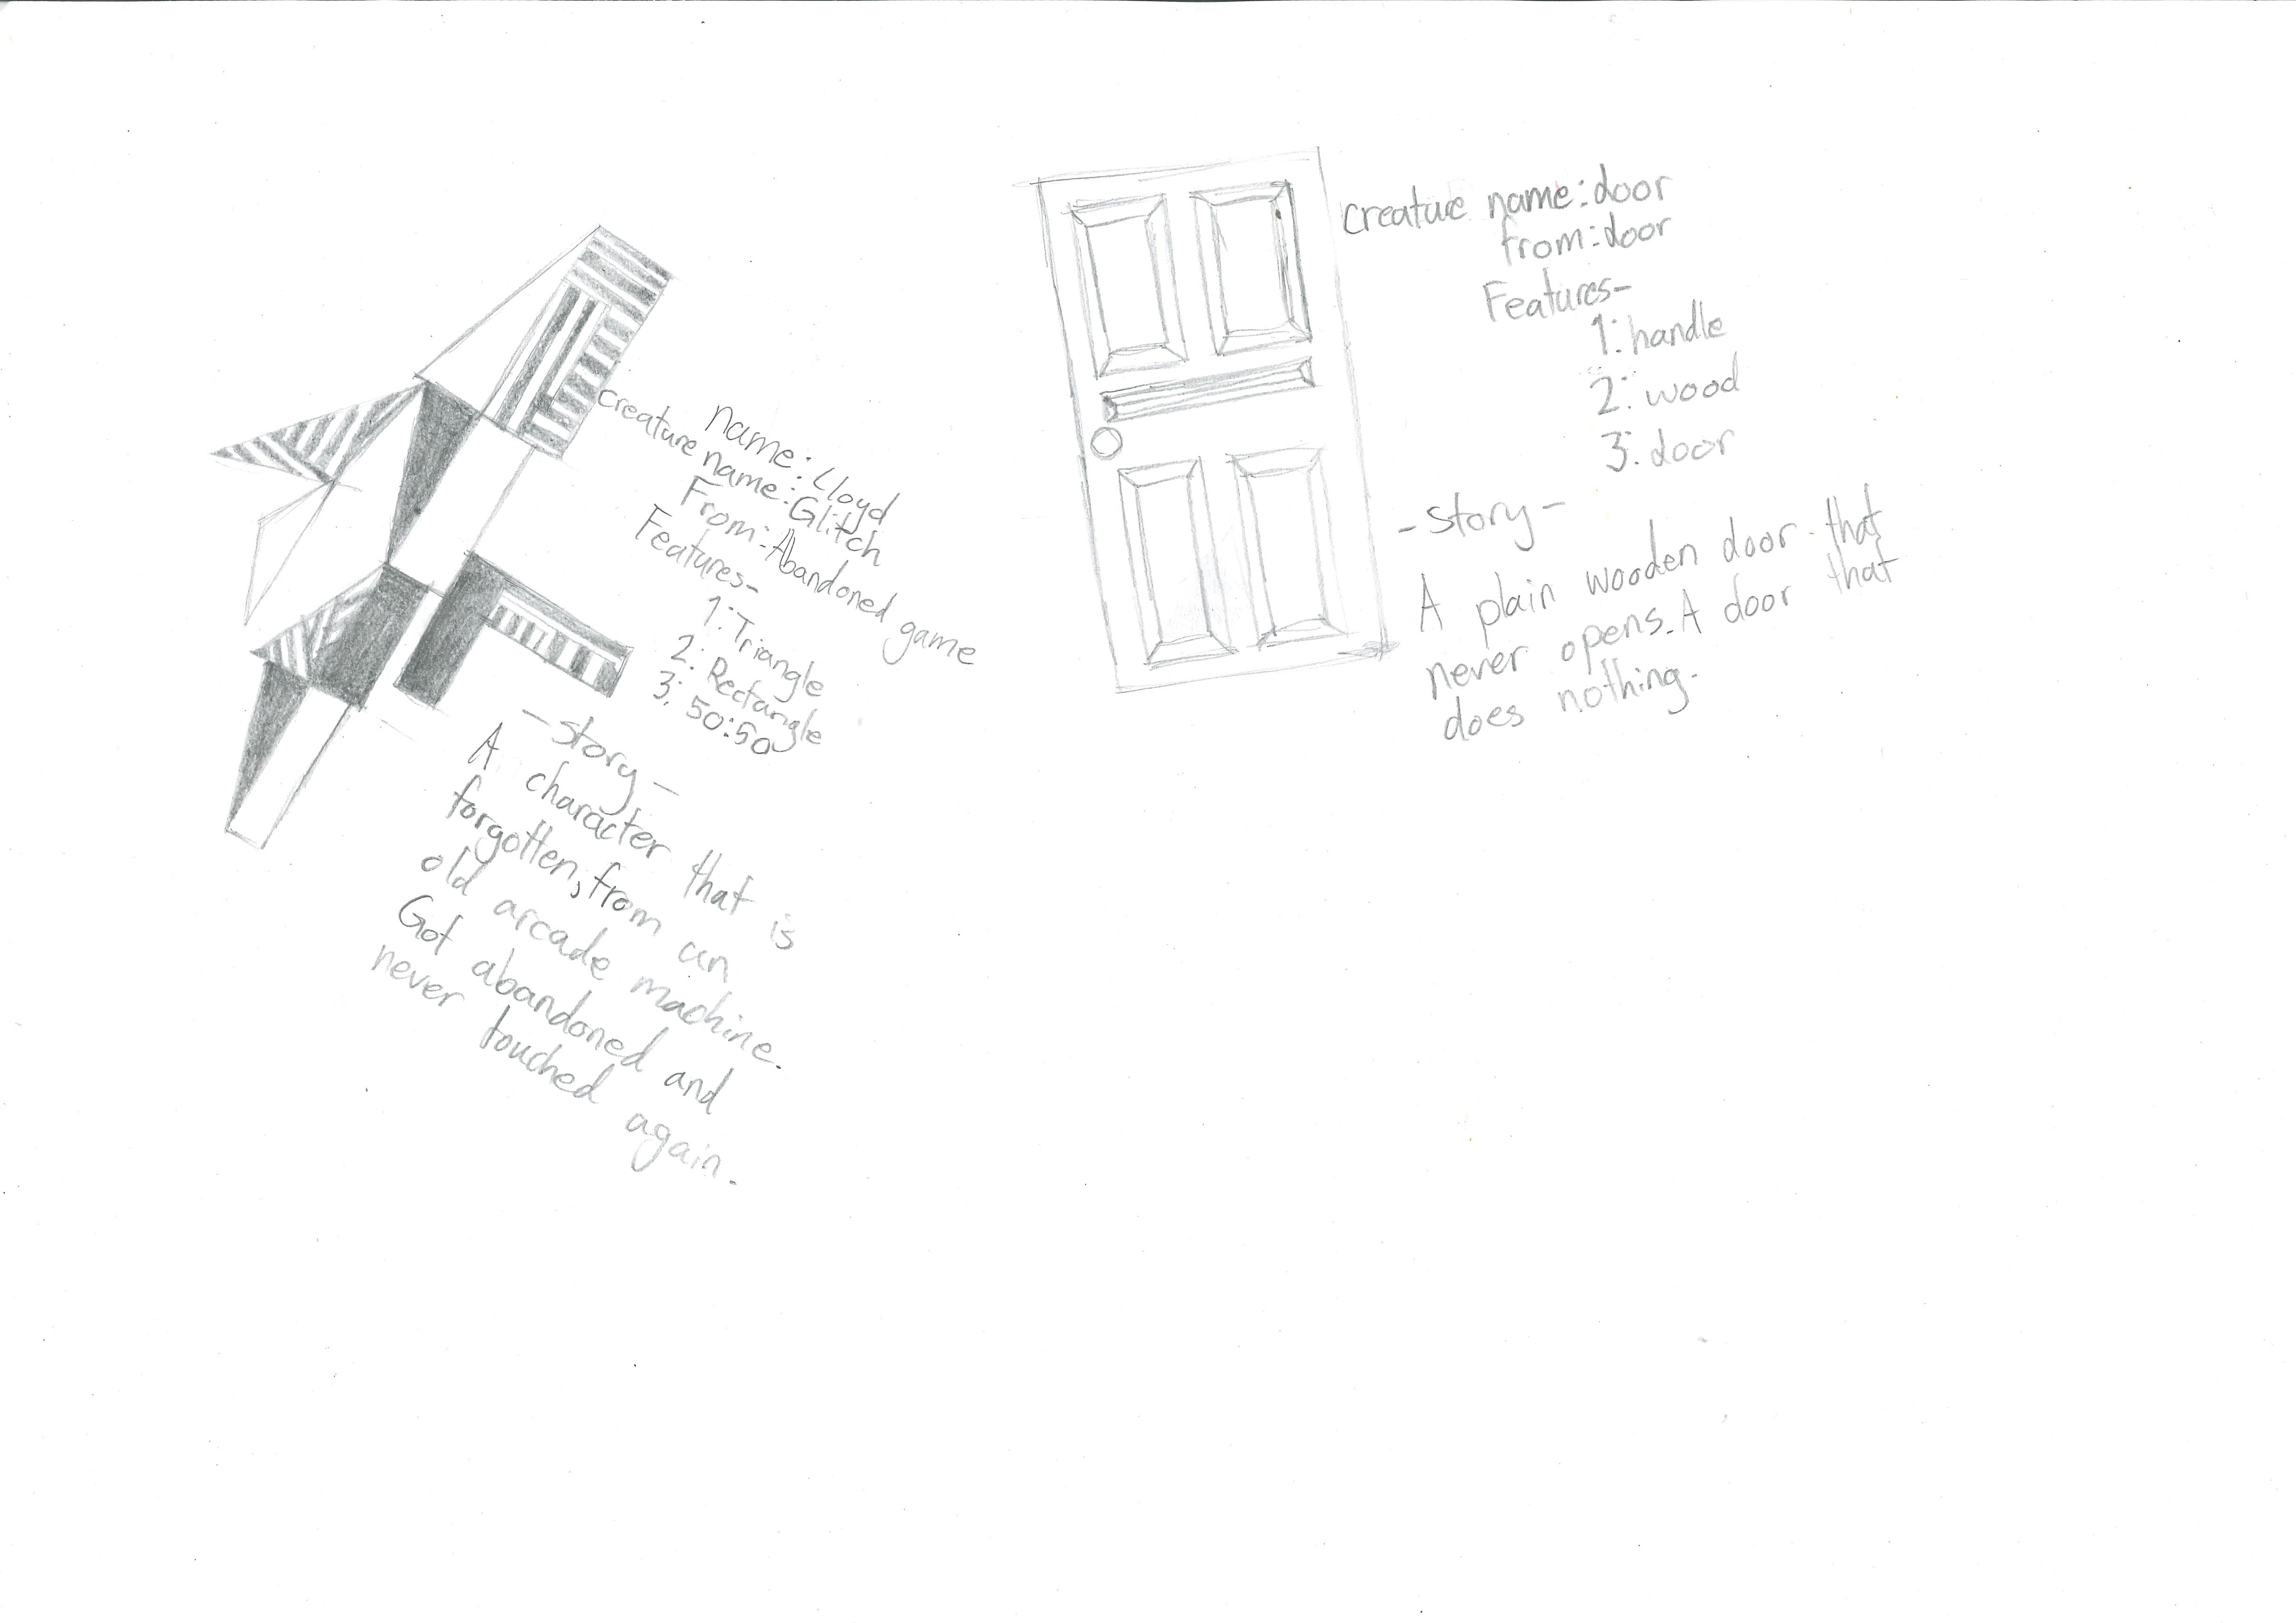 Name: Lloyd
Creature name: Glitch
From: Abandoned game
Features-
1: Triangle
2: Rectangle
3: 50:50
-Story-
A character that is
forgotten, from an
old arcade machine.
Got abandoned and
never touched again.
Creature name: door
from: door
Features-
1: handle
2: wood
3: door
-Story-
A plain wooden door that
never opens. A door that
does nothing.